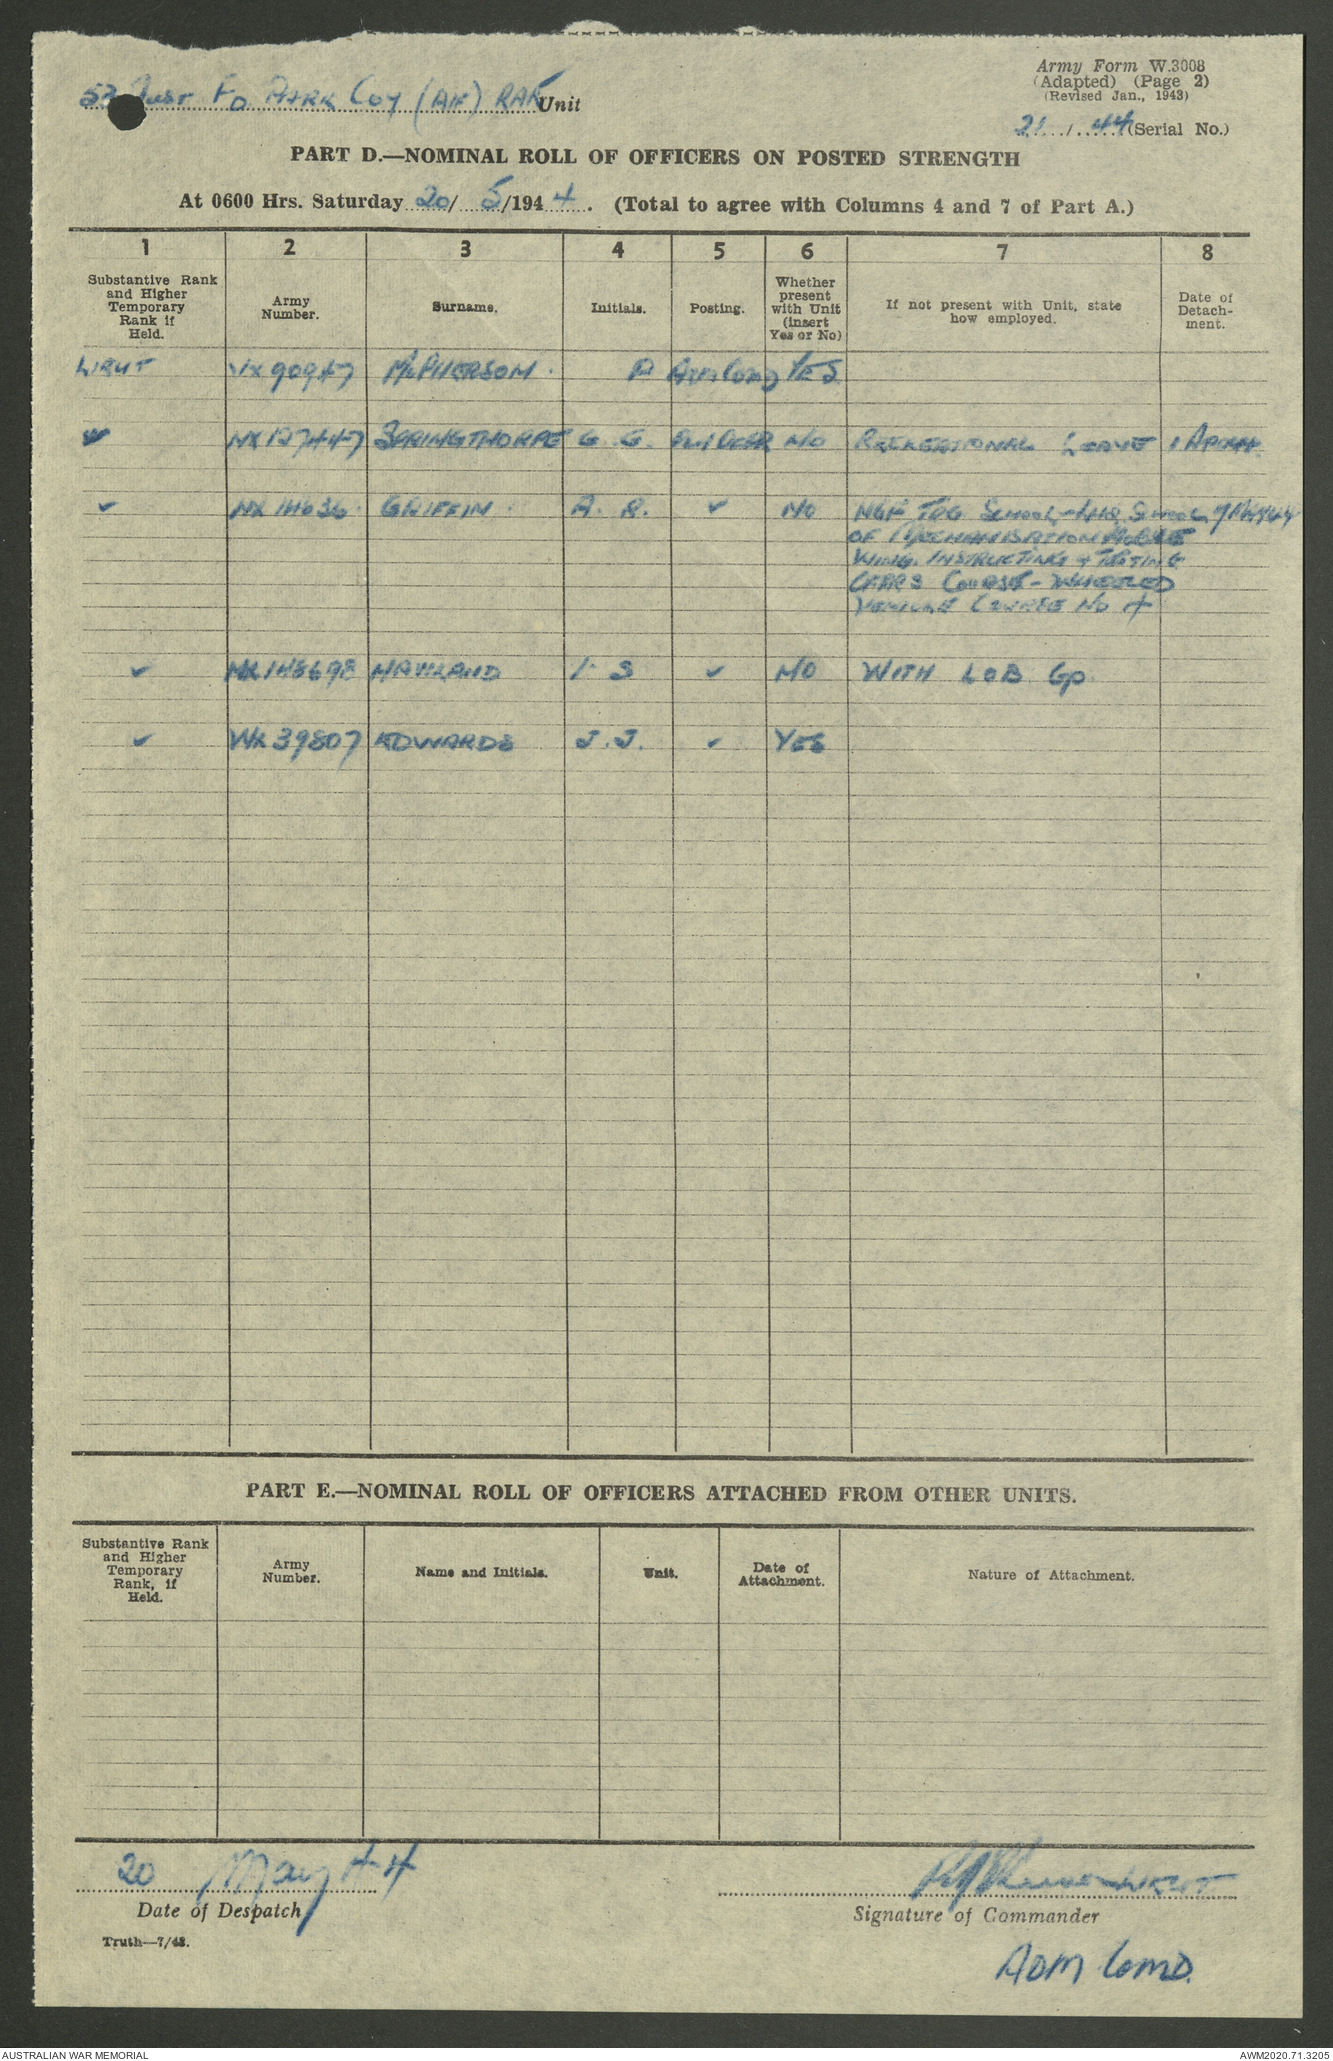 Army Form W.3008
(Adapted) (Page 2)
(Revised Jan., 1943)
Fd Park Coy (AIF) RAE Unit
21 / 44 (Serial No.)
PART D.—NOMINAL ROLL OF OFFICERS ON POSTED STRENGTH
At 0600 Hrs. Saturday 20/ 5/1944. (Total to agree with Columns 4 and 7 of Part A.)
1 2 3 4 5 6 7 8
Substantive Rank and Higher Temporary Rank if Held.
Army Number.
Surname.
Initials.
Posting.
Whether present with Unit (insert Yes or No)
If not present with Unit, state how employed.
Date of Detachment.
LIEUT VX90947 McPHERSON. A YES
NX127447 SPRINGTHORPE G. G. NO RECREATIONAL LEAVE
✓ GRIFFIN. A. R. ✓ NO NGF TRG School - LHQ School
OF MECHANISATION
WING. INSTRUCTING + TESTING
COURSE - WHEELED
VEHICLE COURSE NO 4
✓ I. S ✓ NO WITH LOB Gp
✓ 39807 EDWARDS J. J. ✓ YES
PART E.—NOMINAL ROLL OF OFFICERS ATTACHED FROM OTHER UNITS.
Substantive Rank and Higher Temporary Rank, if Held.
Army Number.
Name and Initials.
Unit.
Date of Attachment.
Nature of Attachment.
20 May 44
Date of Despatch
LIEUT
Signature of Commander
Truth—7/43.
ADM COMD.
AUSTRALIAN WAR MEMORIAL
AWM2020.71.3205